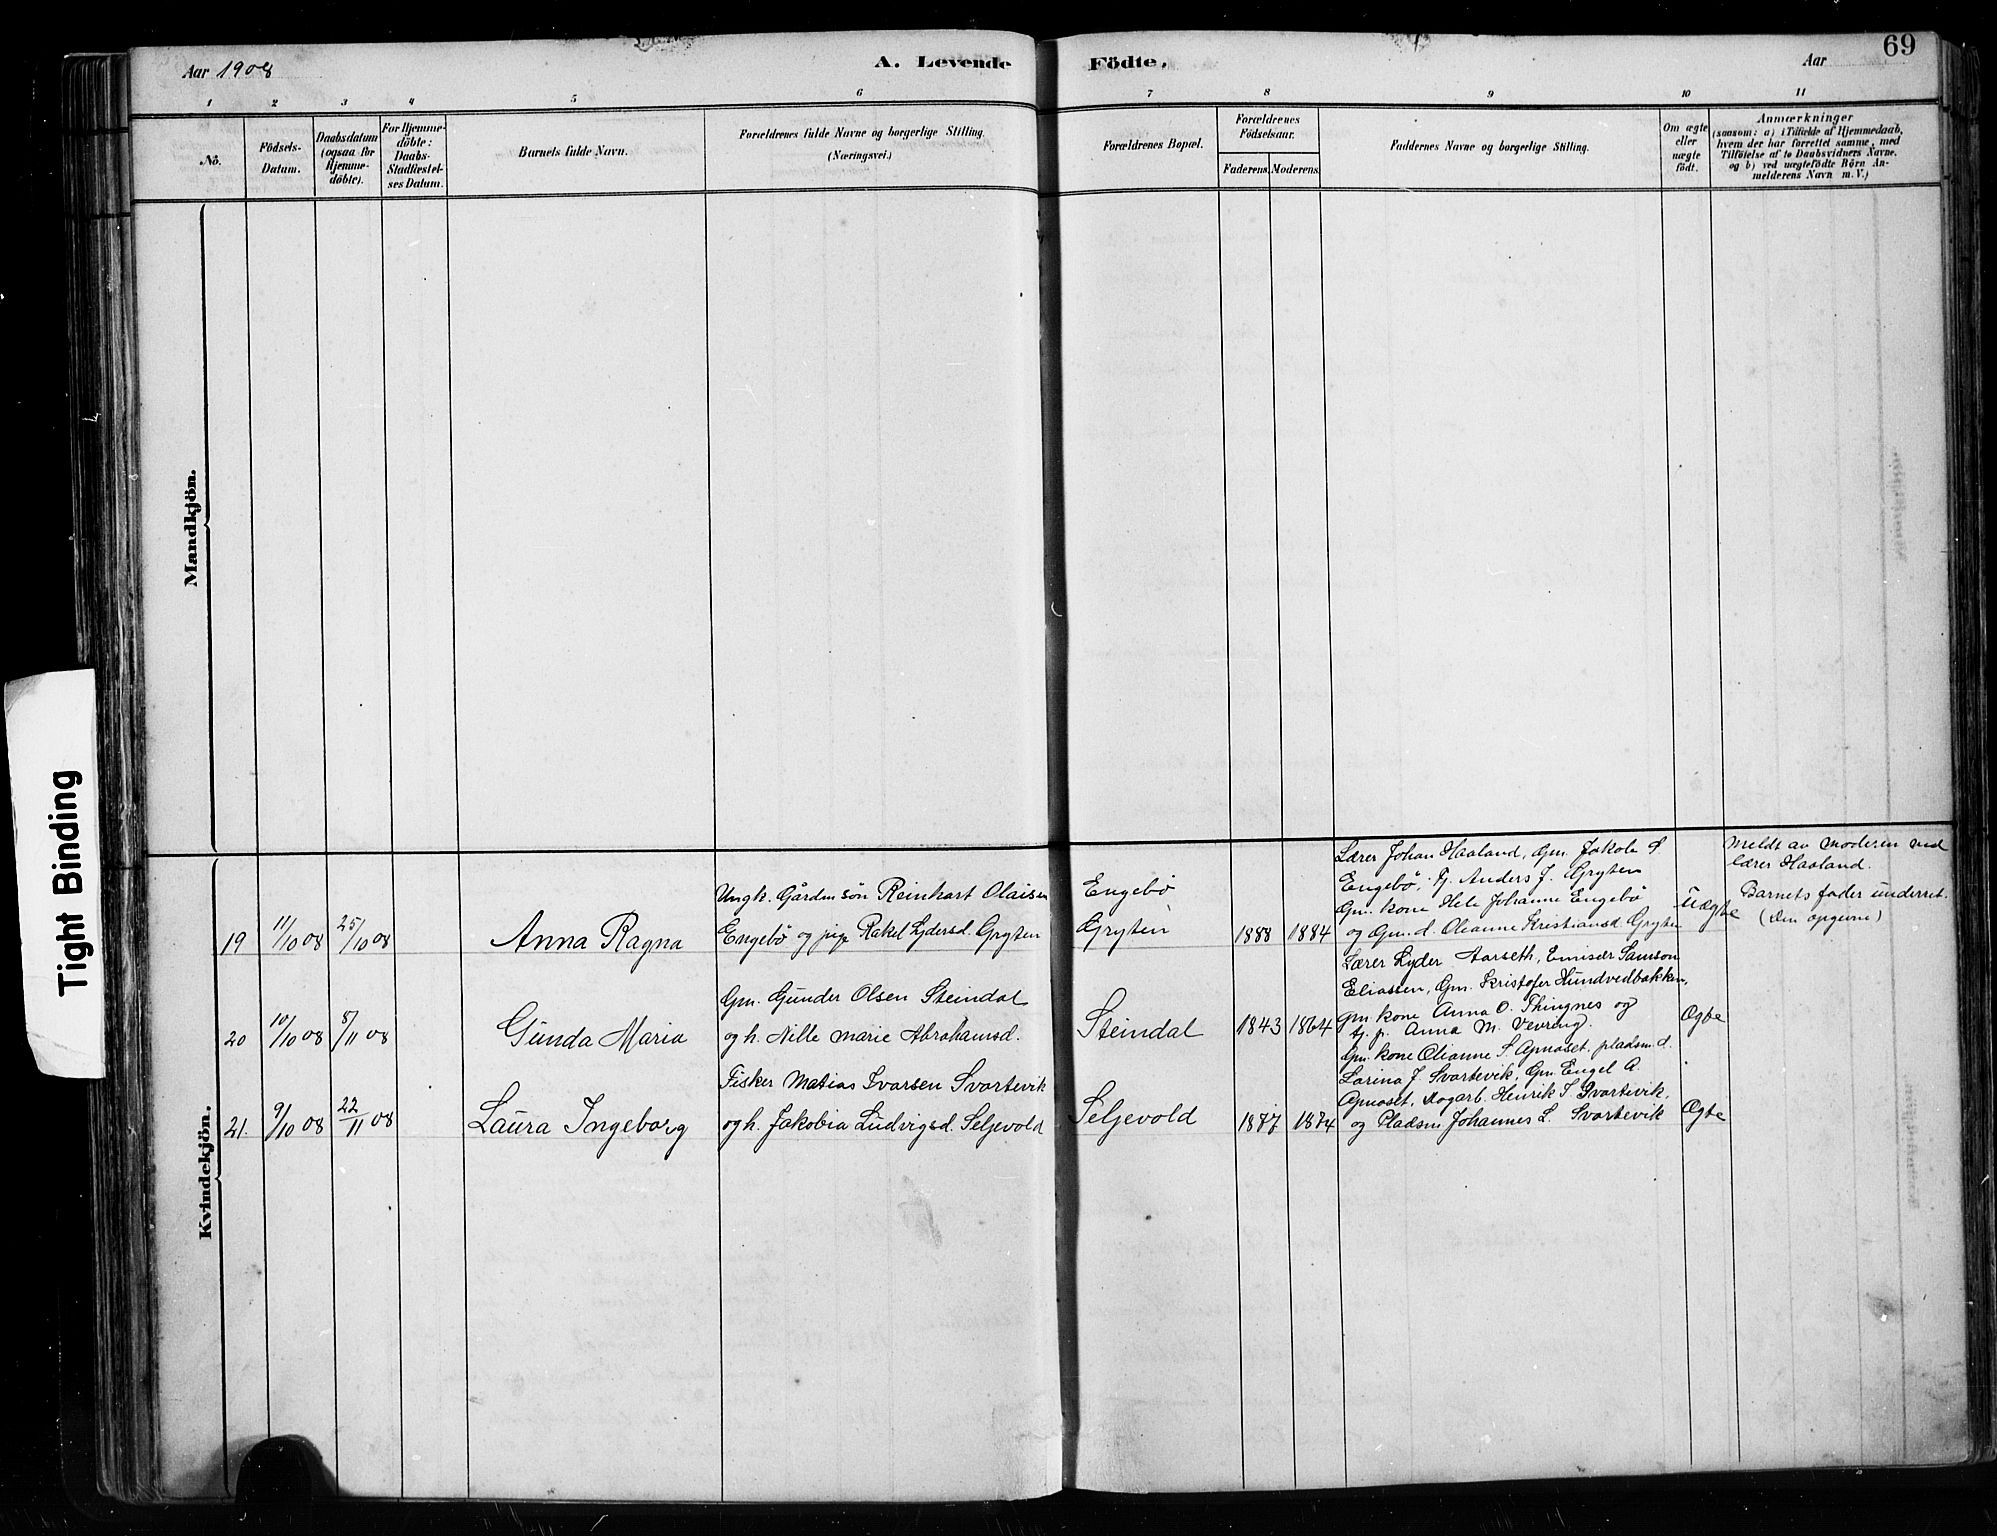 Aar 1908
A. Levende
Födte.
Aar
69
1
2
3
4
5
6
7
8
9
10
11
No.
Födsels-
Datum.
Daabsdatum
(ogsaa for
Hjemme-
döbte).
For Hjemme-
döbte:
Daabs-
Stadfæstel-
ses Datum.
Barnets fulde Navn.
Forældrenes fulde Navne og borgerlige Stilling.
(Næringsvei.)
Forældrenes Bopæl.
Forældrenes
Födselsaar.
Faderens.
Moderens.
Faddernes Navne og borgerlige Stilling.
Om ægte
eller
uægte
födt.
Anmærkninger
(saasom: a) i Tilfælde af Hjemmedaab,
hvem der har forrettet samme, med
Tilföielse af to Daabsvidners Navne,
og b) ved uægtefödte Börn An-
melderens Navn m. V.)
Mandkjön.
Kvindekjön.
Tight Binding
19
11/10 08
25/10 08
Anna Ragna
Ungk. Gårdm sön Reinhart Olaisen
Engebø og pige Rakel Lydersd. Gryten
Engebø
Gryten
1888
1884
Lærer Johan Haaland, Gm. Jakob S
Engebø, Tj. Anders J. Gryten
Gm. kone Johanne Engebø
og Gm. d. Olianne Kristiansd. Gryten
Uægte
Meldt av moderen ved
lærer Haaland.
Barnets fader underret.
(Den opgivne)
20
10/10 08
8/11 08
Gunda Maria
Gm. Gunder Olsen Steindal
og h. Nille Marie Abrahamsd.
Steindal
1843
1864
Lærer Lyder Aarseth, Emisær Samson
Eliassen, Gm. Kristofer Hundvedbakken,
Gm kone Anna O. Thingnes og
tj. p. Anna M. Vevring.
Ægte
21.
9/10 08
22/11 08
Laura Ingeborg
Fisker Matias Ivarsen Svartevik
og h. Jakobia Ludvigsd. Seljevold
Seljevold
1887
1884
Gm. kone Olianne S. Apnaset, pladsm. d.
Larina J. Svartevik, Gm. Engel A.
Apnaset, Dagarb. Henrik I. Svartevik,
og Pladsm Johannes L. Svartevik
Ægte